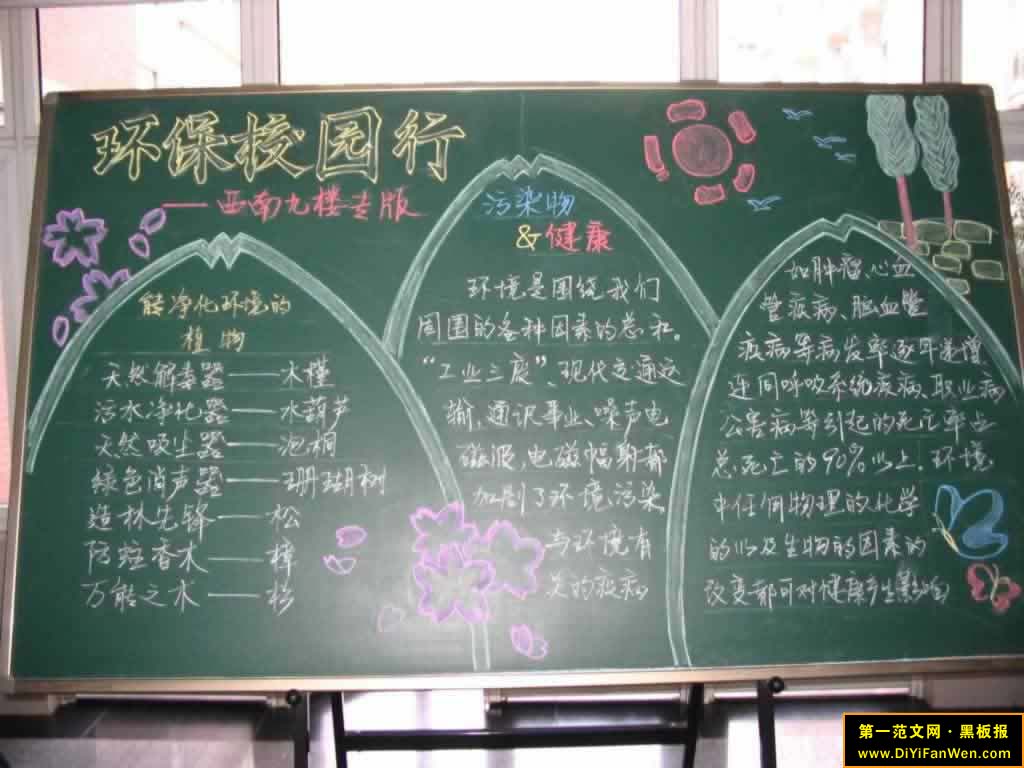 环保校园行
——西南九楼专版
能净化环境的
植物
天然解毒器——木槿
污水净化器——水葫芦
天然吸尘器——泡桐
绿色消声器——珊瑚树
造林先锋——松
防蛀香木——樟
万能之木——杉
污染物
&健康
环境是围绕我们
周围的各种因素的总和。
“工业三废”、现代交通运
输,通讯事业、噪声电
磁波,电磁幅射都
加剧了环境污染
与环境有
关的疾病
如肿瘤、心血
管疾病、脑血管
疾病等病发率逐年递增
连同呼吸系统疾病、职业病
公害病等引起的死亡率占
总死亡的90%以上。环境
中任何物理的化学
的以及生物的因素的
改变都可对健康产生影响
第一范文网·黑板报
www.DiYiFanWen.com